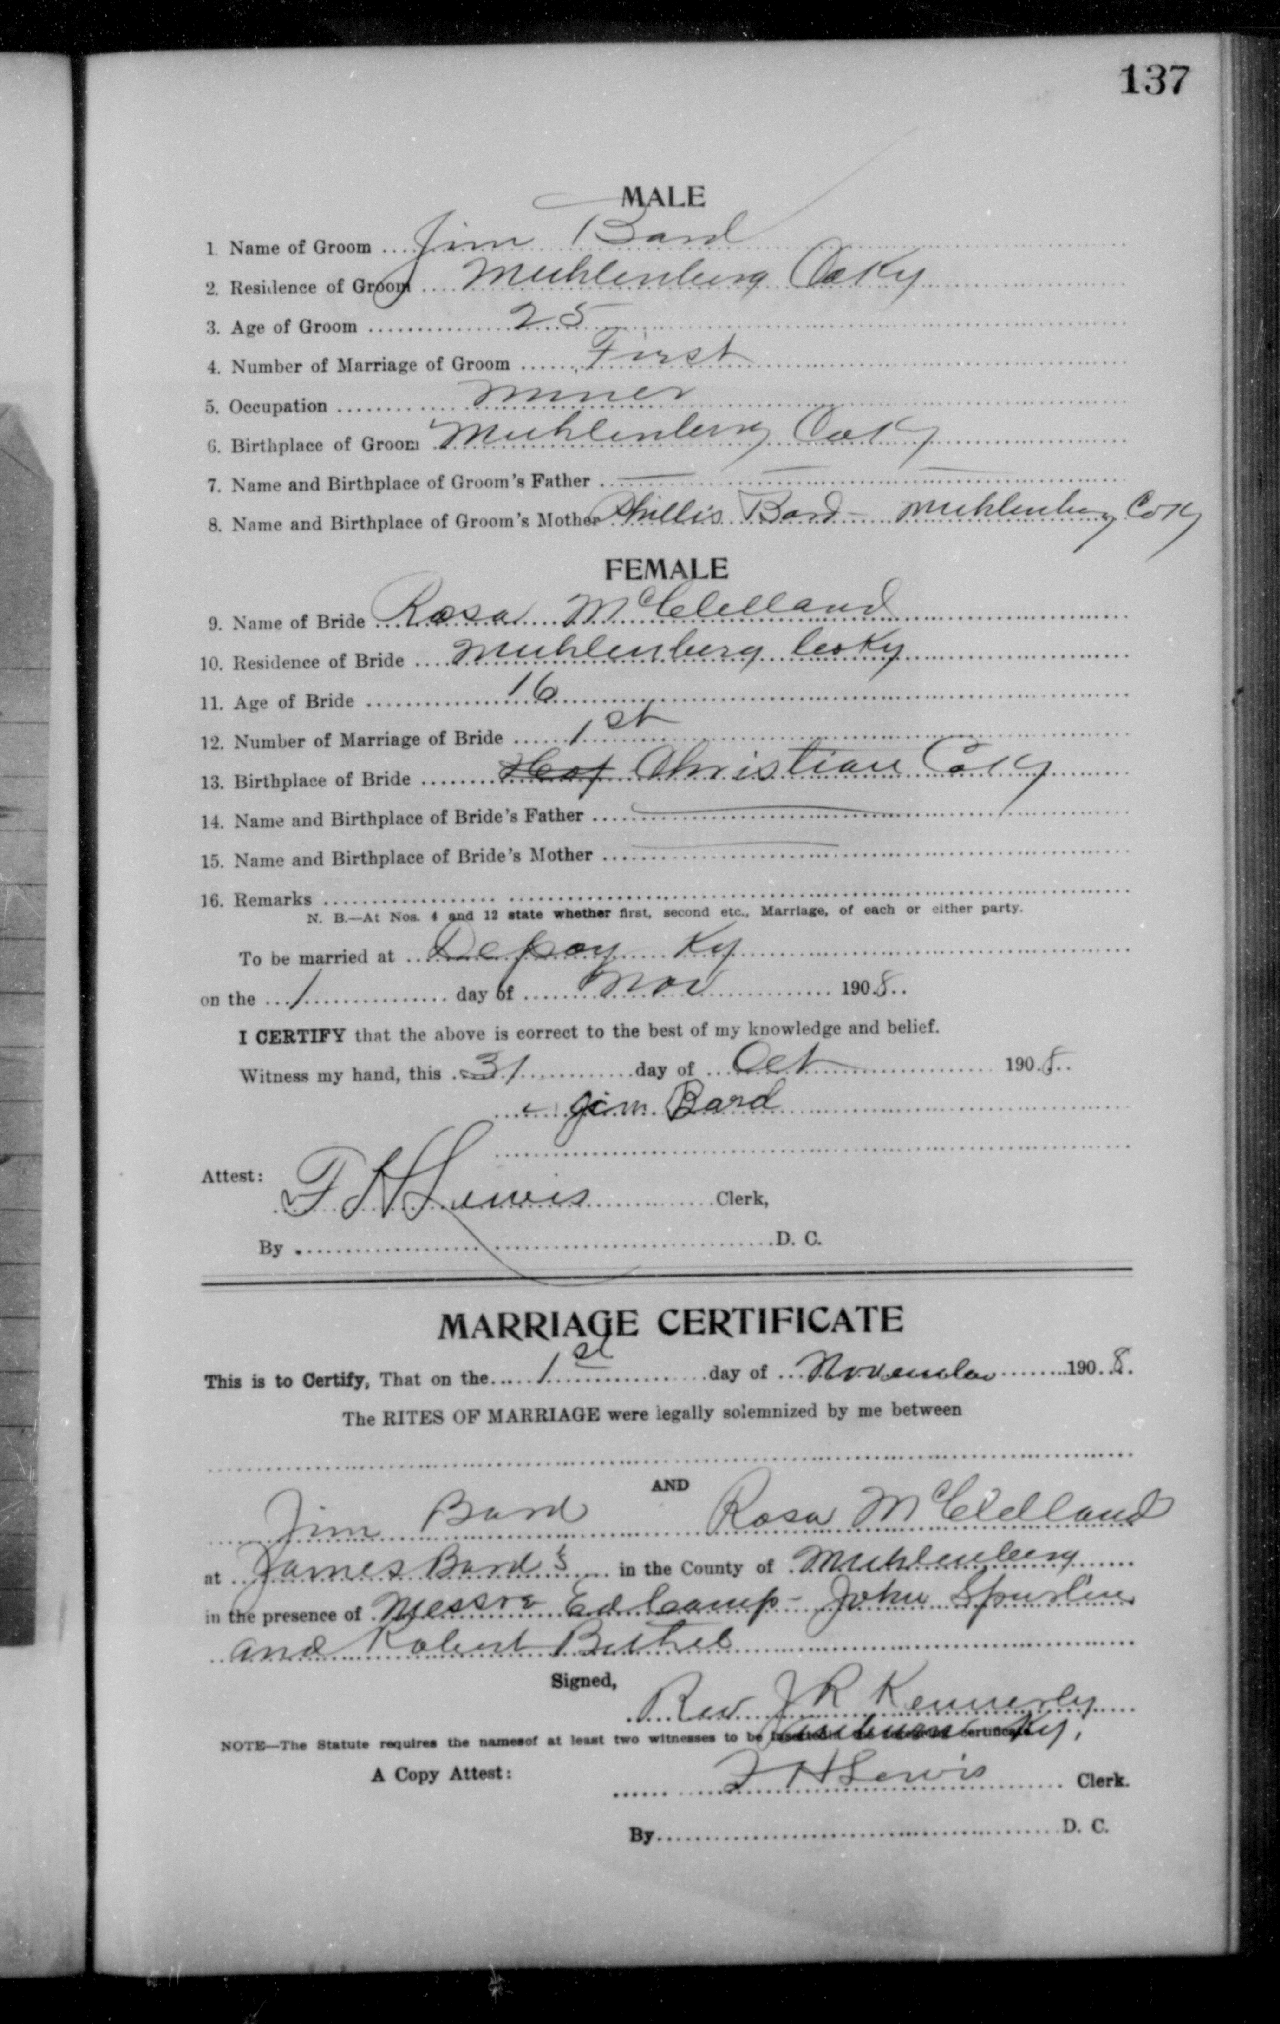 137
MALE
1. Name of Groom Jim Bard
2. Residence of Groom Muhlenberg Co Ky
3. Age of Groom 25
4. Number of Marriage of Groom First
5. Occupation Miner
6. Birthplace of Groom Muhlenberg Co Ky
7. Name and Birthplace of Groom's Father
8. Name and Birthplace of Groom's Mother Phillis Bard - Muhlenberg Co Ky
FEMALE
9. Name of Bride Rosa McClelland
10. Residence of Bride Muhlenberg Co Ky
11. Age of Bride 16
12. Number of Marriage of Bride 1st
13. Birthplace of Bride Christian Co Ky
14. Name and Birthplace of Bride's Father
15. Name and Birthplace of Bride's Mother
16. Remarks
N. B.—At Nos. 4 and 12 state whether first, second etc., Marriage, of each or either party.
To be married at Depoy Ky
on the 1 day of Nov 1908
I CERTIFY that the above is correct to the best of my knowledge and belief.
Witness my hand, this 31 day of Oct 1908
Jim Bard
Attest:
T H Lewis Clerk,
By D. C.
MARRIAGE CERTIFICATE
This is to Certify, That on the 1st day of November 1908.
The RITES OF MARRIAGE were legally solemnized by me between
AND
Jim Bard Rosa McClelland
at James Bard's in the County of Muhlenberg
in the presence of Messrs Ed Camp - John Spurlin
and Robert Bethel
Signed,
Rev J R Kennerly
NOTE—The Statute requires the namesof at least two witnesses to be Ky,
A Copy Attest: T H Lewis Clerk.
By D. C.